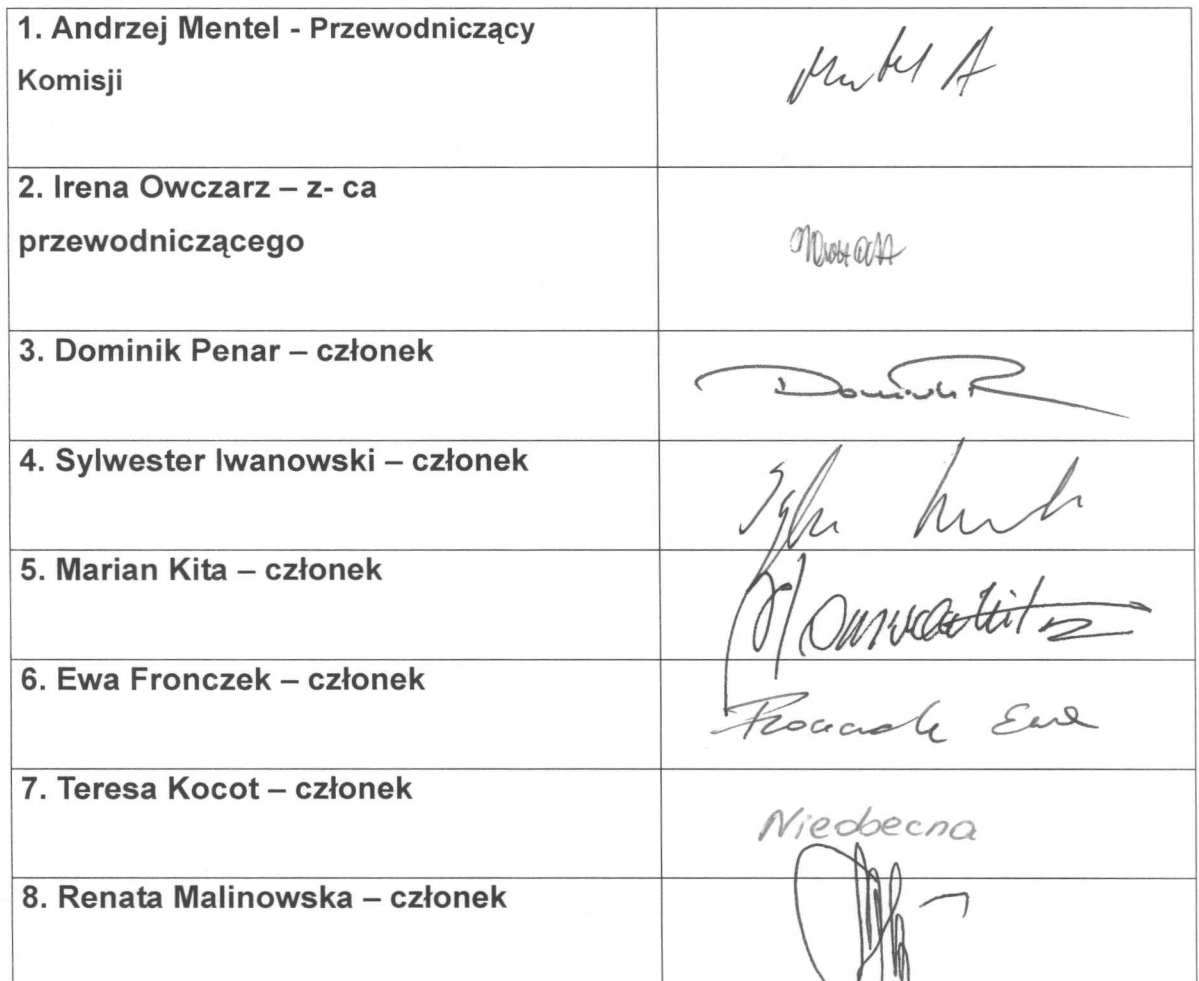 1. Andrzej Mentel - Przewodniczący
Komisji
Mentel A
2. Irena Owczarz – z- ca
przewodniczącego
3. Dominik Penar – członek
Dominik P
4. Sylwester Iwanowski – członek
5. Marian Kita – członek
6. Ewa Fronczek – członek
Fronczek Ewa
7. Teresa Kocot – członek
Nieobecna
8. Renata Malinowska – członek